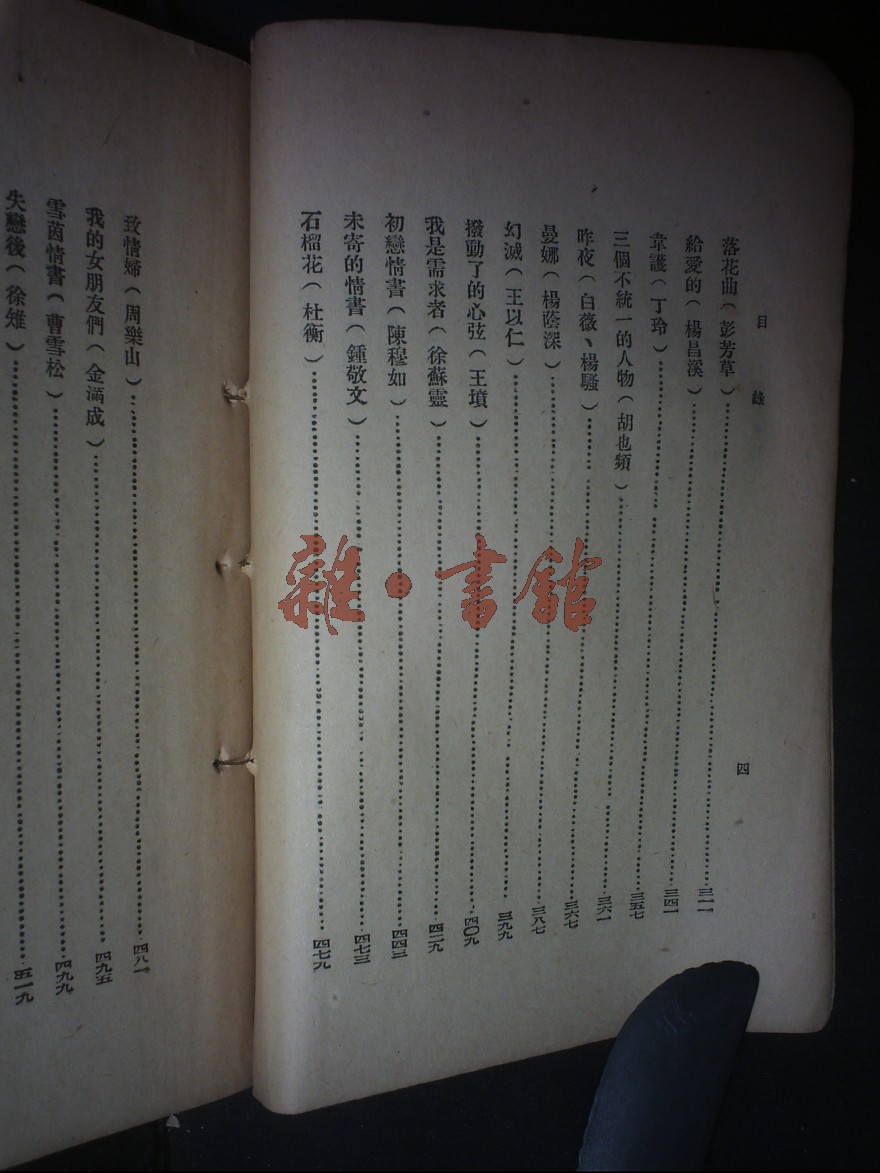 目錄
四
落花曲（彭芳草）……三一一
給愛的（楊昌溪）……三四一
韋護（丁玲）……三五七
三個不統一的人物（胡也頻）……三六一
昨夜（白薇、楊騷）……三六七
曼娜（楊蔭深）……三八七
幻滅（王以仁）……三九九
撥動了的心弦（王墳）……四〇九
我是需求者（徐蘇靈）……四二九
初戀情書（陳穆如）……四四三
未寄的情書（鍾敬文）……四七三
石榴花（杜衡）……四七九
致情婦（周樂山）……四八一
我的女朋友們（金滿成）……四九五
雪茵情書（曹雪松）……四九九
失戀後（徐雉）……五一九
雜·書館